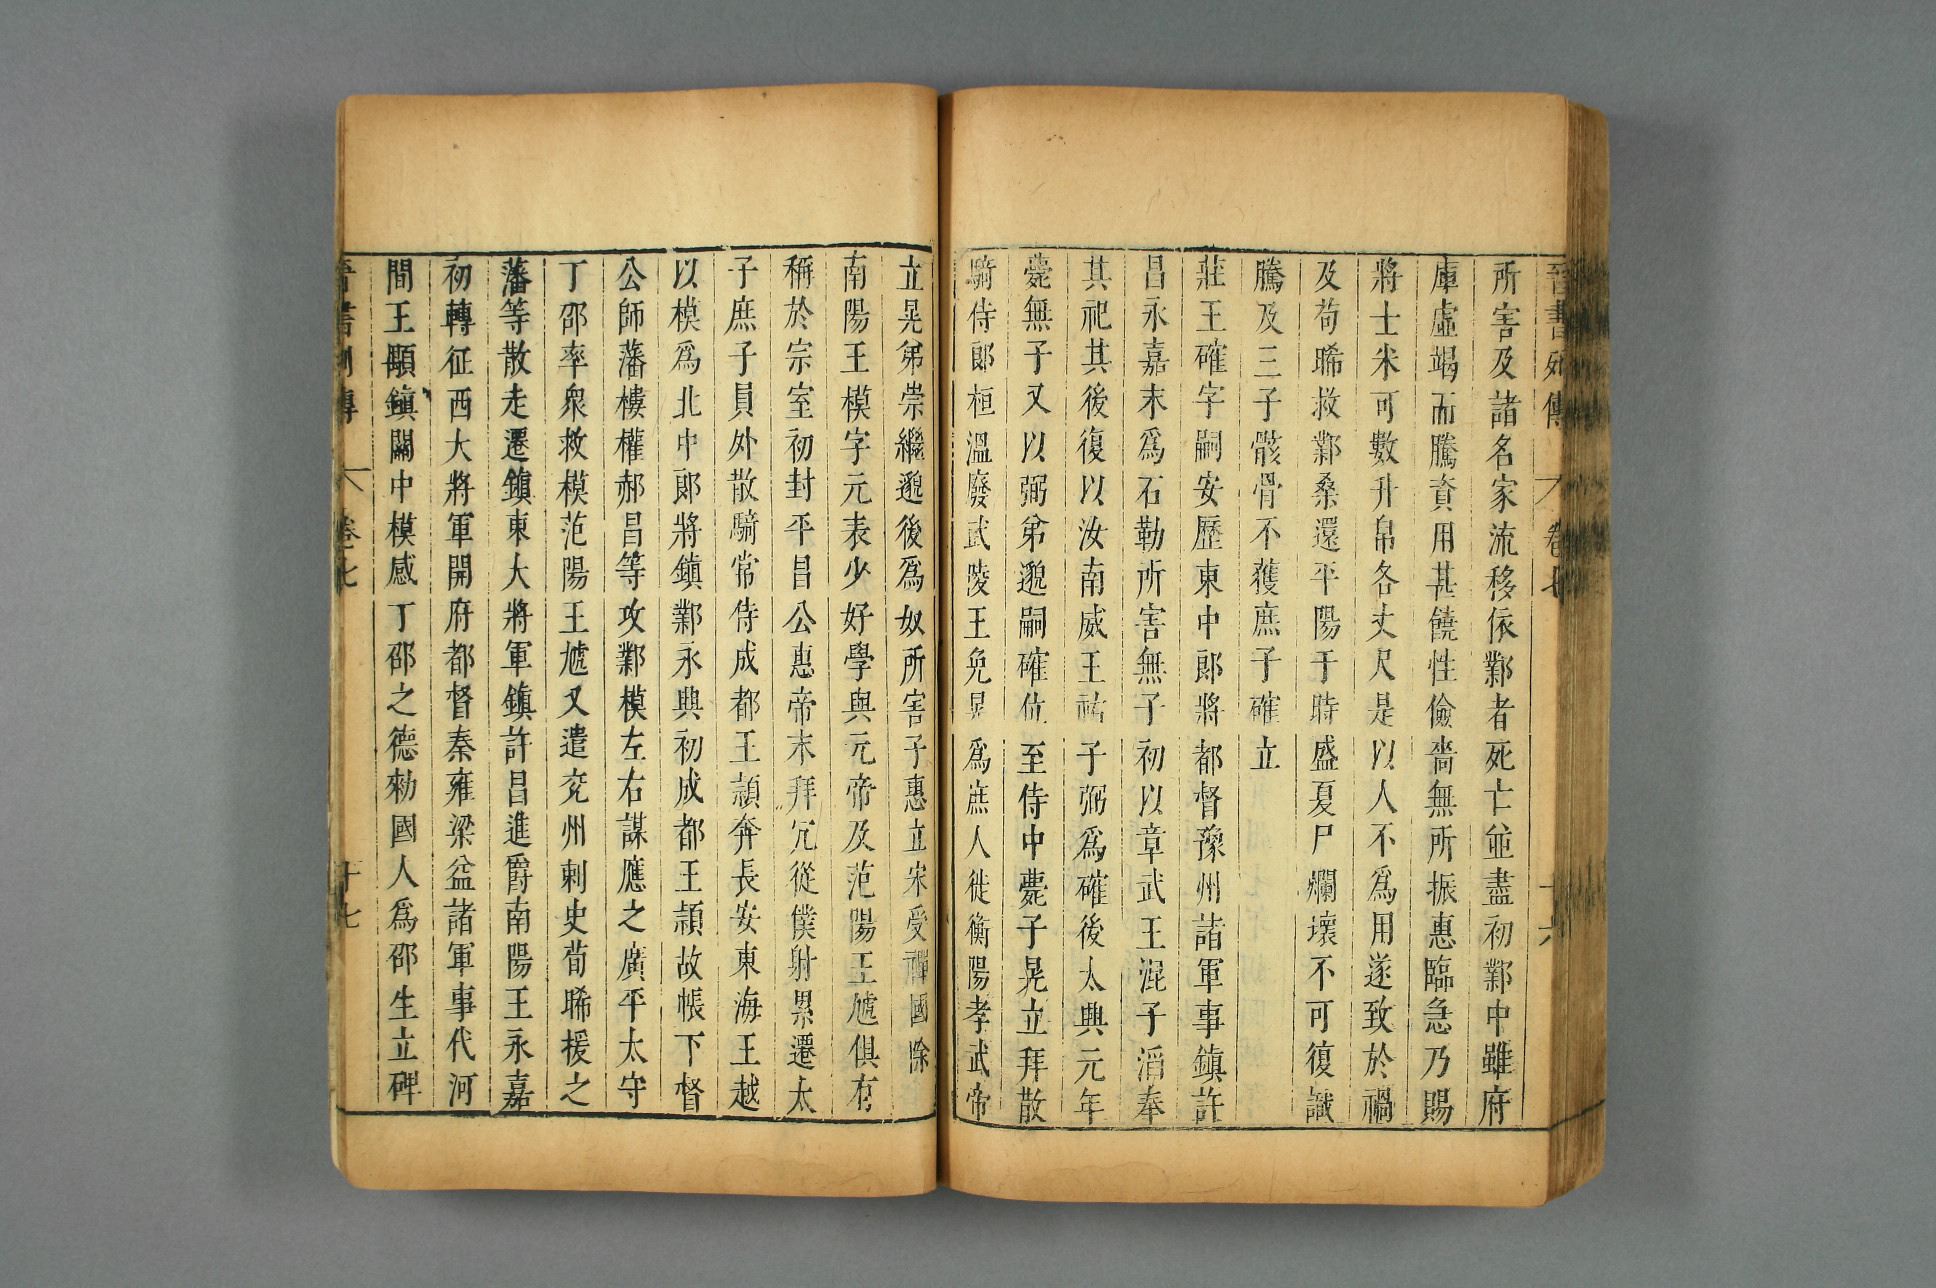 晉書列傳 卷七 十六
所害及諸名家流移依鄴者死亡並盡初鄴中雖府
庫虛竭而騰資用甚饒性儉嗇無所振惠臨急乃賜
將士米可數升帛各丈尺是以人不爲用遂致於禍
及苟晞救鄴桑還平陽于時盛夏尸爛壞不可復識
騰及三子骸骨不獲庶子確立
莊王確字嗣安歷東中郎將都督豫州諸軍事鎮許
昌永嘉末爲石勒所害無子初以章武王混子滔奉
其祀其後復以汝南威王祐子弼爲確後太興元年
薨無子又以弼弟邈嗣確位至侍中薨子晃立拜散
騎侍郎桓溫廢武陵王免晃爲庶人徙衡陽孝武帝
立晃弟崇繼邈後爲奴所害子惠立宋受禪國除
南陽王模字元表少好學與元帝及范陽王虓俱有
稱於宗室初封平昌公惠帝末拜冗從僕射累遷太
子庶子員外散騎常侍成都王穎奔長安東海王越
以模爲北中郎將鎮鄴永興初成都王穎故帳下督
公師藩樓權郝昌等攻鄴模左右謀應之廣平太守
丁邵率衆救模范陽王虓又遣兗州刺史苟晞援之
藩等散走遷鎮東大將軍鎮許昌進爵南陽王永嘉
初轉征西大將軍開府都督秦雍梁益諸軍事代河
間王顒鎮關中模感丁邵之德勑國人爲邵生立碑
晉書列傳 卷七 十七